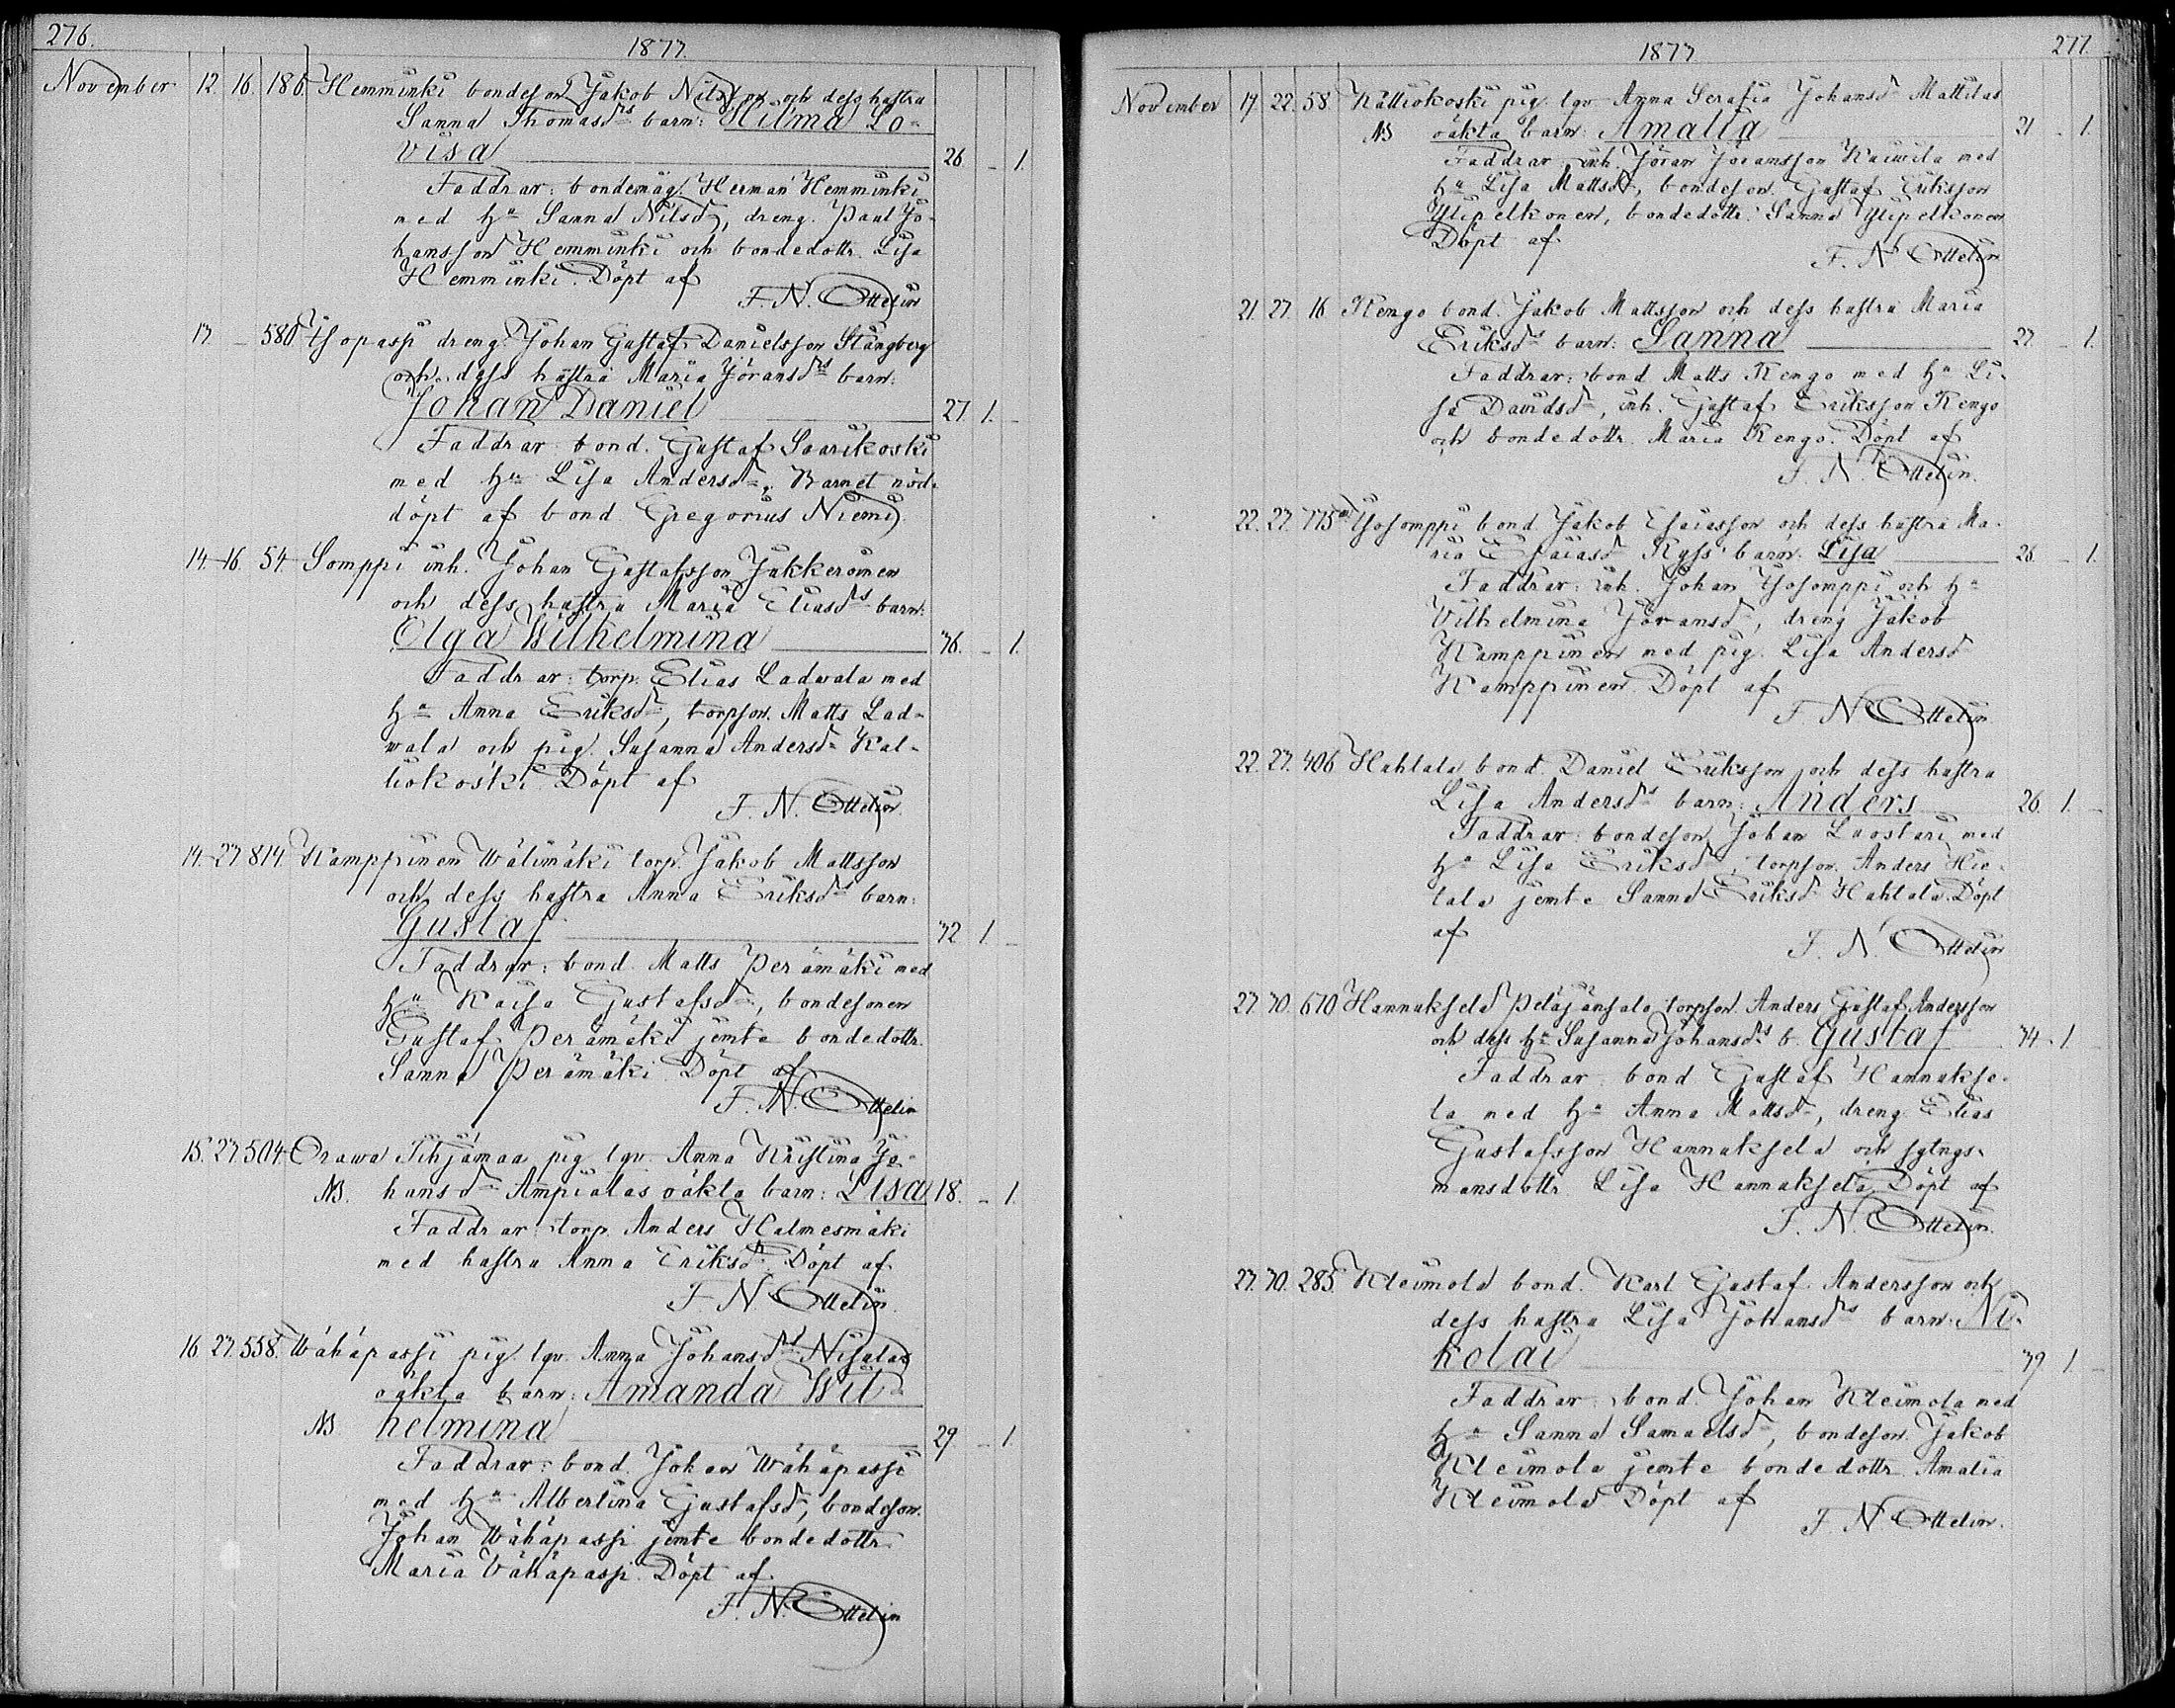 276.
1877.
November 12. 16. 186. Hemminki bondeson Jakob Nilsson och dess hustru
Sanna Thomasdrs barn: Hilma Lo-
visa 26. – 1.
Faddrar: bondemåg. Herman Hemminki
med hu Sanna Nilsdr, dreng. Paul Jo-
hansson Hemminki och bondedottr. Lisa
Hemminki. Döpt af
F. N. Ottelin
13. – 580. Isopassi dreng. Johan Gustaf Danielsson Stångberg
och dess hustru Maria Göransdrs barn:
Johan Daniel 27. 1. –
Faddrar bond. Gustaf Saarikoski
med hu Lisa Andersdr. Barnet nöd-
döpt af bond. Gregorius Niemi.
14. 16. 54. Somppi inh. Johan Gustafsson Jukkeroinen
och dess hustru Maria Eliasdrs barn:
Olga Wilhelmina 36. – 1.
Faddrar: torp. Elias Ladvala med
hu Anna Eriksdr, torpson. Matts Lad-
vala och pig. Susanna Andersdr Kal-
liokoski. Döpt af
F. N. Ottelin.
14. 27. 814. Kamppinen Wälimäki torp. Jakob Mattsson
och dess hustru Anna Eriksdrs barn:
Gustaf 32 1. –
Faddrar: bond. Matts Perämäki med
hu Kaisa Gustafsdr, bondesonen
Gustaf Perämäki jemte bondedottr.
Sanna Perämäki. Döpt af
F. N. Ottelin
15. 27. 504. Orawa Pihjamaa pig. lqv. Anna Kristina Jo-
NB. hansdr Ampialas oäkta barn: Lisa 18. – 1.
Faddrar: torp. Anders Halmesmäki
med hustru Anna Eriksdr. Döpt af
F. N. Ottelin.
16. 27. 558. Wähäpassi pig. lqv. Anna Johansdr Nisulas
oäkta barn: Amanda Wil-
NB. helmina 29. – 1.
Faddrar: bond. Johan Wähäpassi
med hu Albertina Gustafsdr, bondeson.
Johan Wähäpassi jemte bondedottr.
Maria Vähäpassi. Döpt af
F. N. Ottelin
1877.
277.
November 17. 22. 58. Kalliokoski pig. lqv. Anna Serafia Johansdr Mattilas
NB oäkta barn: Amalia 21 – 1.
Faddrar inh. Jöran Jöransson Kaiwila med
hu Lisa Mattsdr, bondeson. Gustaf Eriksson
Ylipelkonen, bondedottr. Sanna Ylipelkonen
Döpt af
F. N. Ottelin
21. 27. 16. Rengo bond. Jakob Mattsson och dess hustru Maria
Eriksdrs barn: Sanna 27. – 1.
Faddrar: bond. Matts Rengo med hu Li-
sa Davidsdr, inh. Gustaf Eriksson Rengo
och bondedottr. Maria Rengo. Döpt af
F. N. Ottelin.
22. 27. 775. Isosomppi bond. Jakob Esaiasson och dess hustru Ma-
ria Esaiasdr Ryss' barn. Lisa 28. – 1.
Faddrar: inh. Johan Isosomppi och hu
Vilhelmina Jöransdr, dreng Jakob
Kamppinen med pig. Lisa Andersdr
Kamppinen. Döpt af
F. N. Ottelin
22. 27. 406. Hahtala bond. Daniel Eriksson och dess hustru
Lisa Andersdrs barn: Anders 26. 1. –
Faddrar: bondeson Johan Luostari med
hu Lisa Eriksdr, torpson. Anders Hie-
tala jemte Sanna Eriksdr Hahtala. Döpt
af
F. N. Ottelin
27. 30. 610 Hannuksela Petäjänsalo torpson. Anders Gustaf Andersson
och dess hu Susanna Johansdrs b. Gustaf 34. 1.
Faddrar: bond. Gustaf Hannukse-
la med hu Anna Mattsdr, dreng. Elias
Gustafsson Hannuksela och sytngs-
mansdottr. Lisa Hannuksela. Döpt af
F. N. Ottelin.
27. 30. 285. Kleimola bond. Karl Gustaf Andersson och
dess hustru Lisa Johansdrs barn: Ni-
kolai 39 1. –
Faddrar: bond. Johan Kleimola med
hu Sanna Samuelsdr, bondeson. Jakob
Kleimola jemte bondedottr. Amalia
Kleimola. Döpt af
F. N. Ottelin.